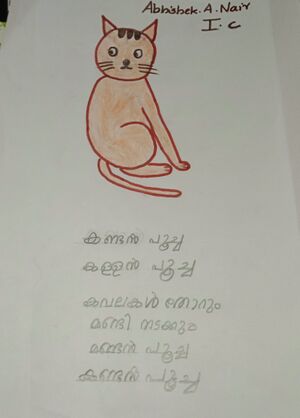 Abhishek.A.Nair
I.C
കണ്ടൻ പൂച്ച
കള്ളൻ പൂച്ച
കവലകൾ തോറും
മണ്ടി നടക്കും
മണ്ടൻ പൂച്ച
കണ്ടൻ പൂച്ച